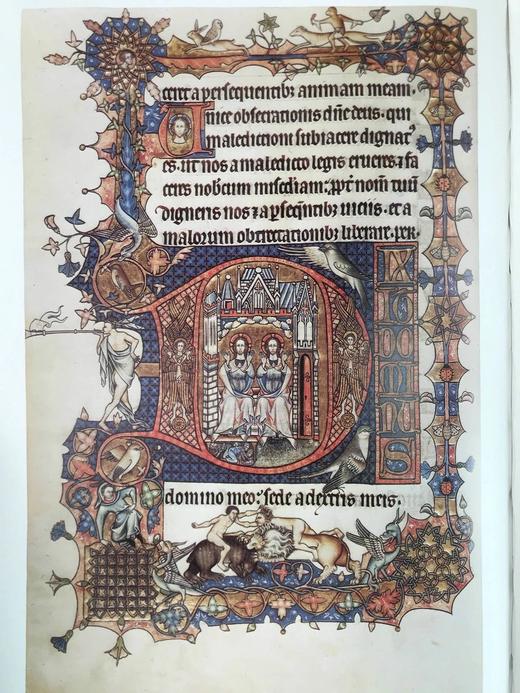 cere a persequentibꝫ animam meam.
Unice obsecrationis dn̄e deus. qui
maledictioni subiacere dignatꝰ
es. ut nos a maledicto legis erueres. ⁊ fa
ceres nobcum mis͞ediam: ꝓpt̄ nom̄ tuū
digneris nos ⁊ a ꝑseqn̄tibꝫ uiciis. et a
malorum obtrectationibꝫ liberare. per.
D
DOMINUS
domino meo: sede a dextris meis.